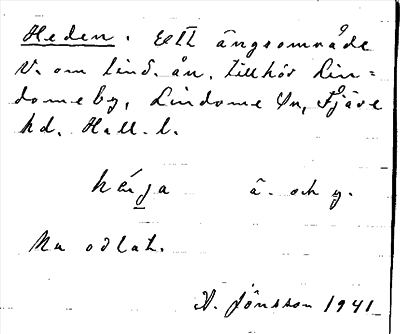 Heden. Ett ängsområde
V. om Lind. ån, tillhör Lin=
dome by, Lindome sn, Fjäre
hd. Hall. l.
ä. och y.
Nu odlat.
A. Jönsson 1941